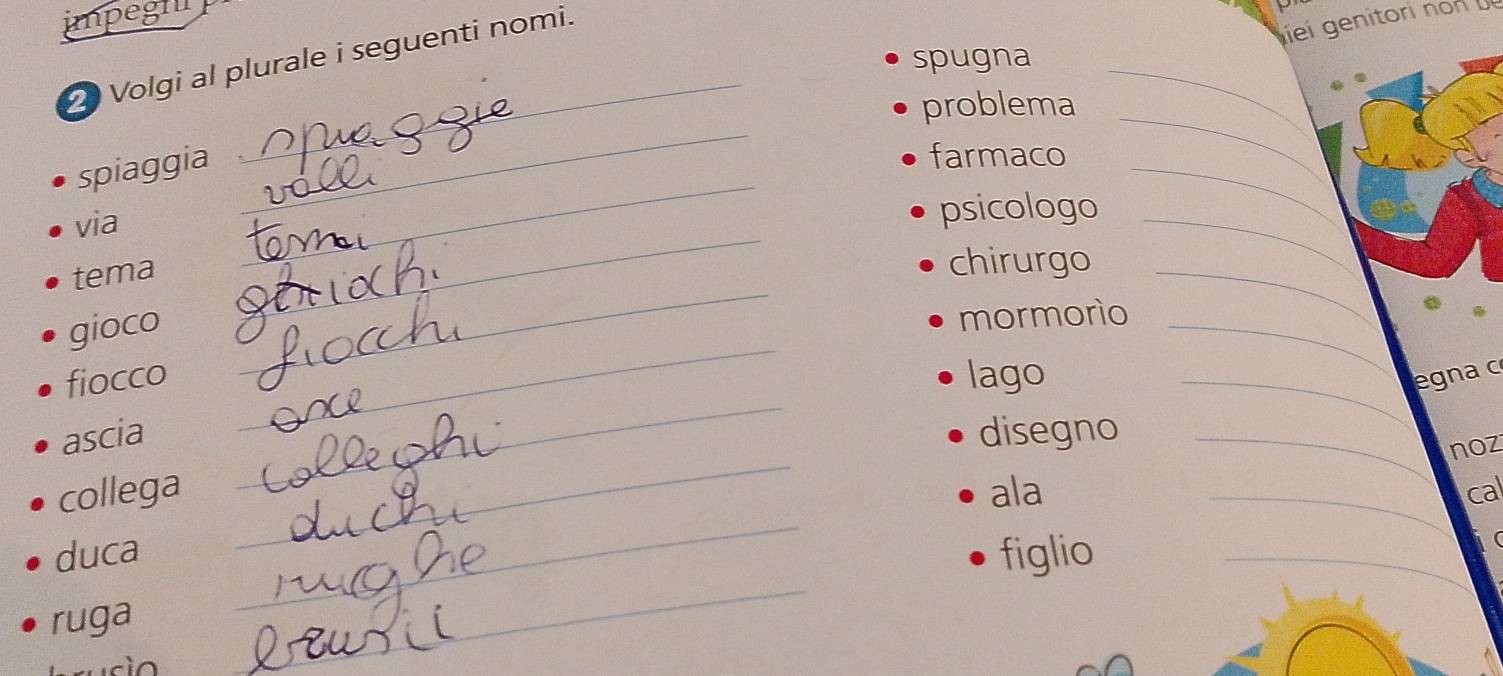 2 Volgi al plurale i seguenti nomi.
• spiaggia spiaggie
• via
• tema temi
• gioco giochi
• fiocco fiocchi
• ascia asce
• collega colleghi
• duca duchi
• ruga rughe
brusii
• spugna
• problema
• farmaco
• psicologo
• chirurgo
• mormorìo
• lago
• disegno
• ala
• figlio
genitori non
egna
noz
cal